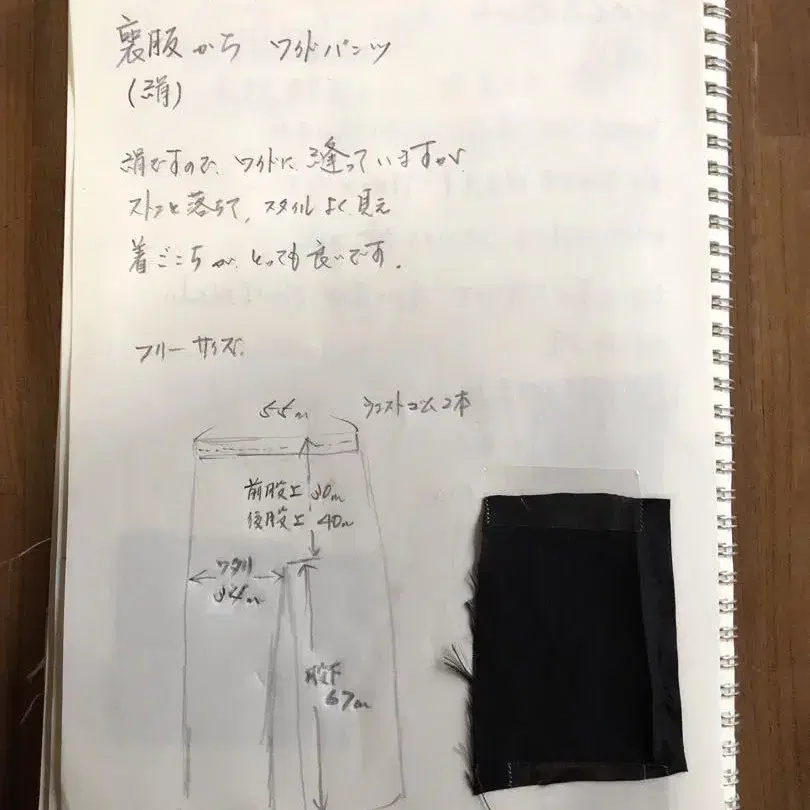 喪服から ワイドパンツ
(絹)
絹ですので、ワイドに縫っていますが
ストンと落ちて、スタイルよく見え
着ごこちが、とっても良いです。
フリーサイズ
55cm ウエストゴム2本
前股上 30cm
後股上 40cm
ワタリ
34cm
股下
67cm